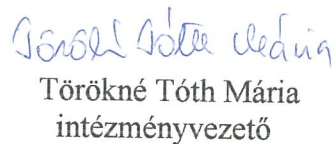 Törökné Tóth Mária
Törökné Tóth Mária
intézményvezető